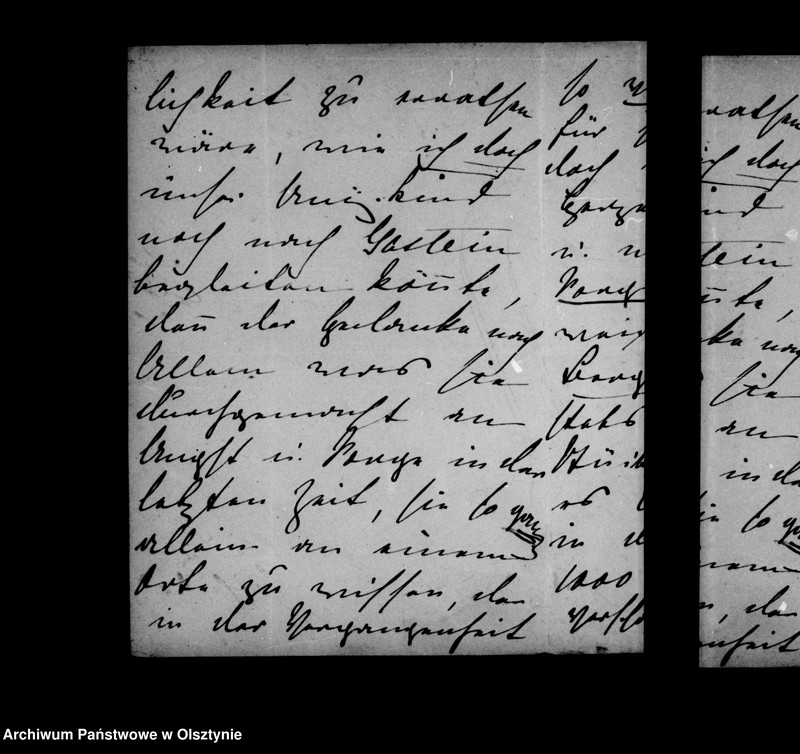 lichkeit zu errathen
wäre, wie ich doch
unser kind
noch nach Gastein
begleiten könnte,
den̅ der Gedanke nach
Allem was sie
durchgemacht an
Angst u. Sorge in der
letzten Zeit, sie so ganz
allein an einem
Orte zu wissen, der
in der Vergangenheit
so
für
doch
u.
Sorg
Berg
stets
es
in
1000
rathen
ich doch
ind
stein
nnte,
ke nach
sie
an
in de
sie so
nem
n, der
enheit
Archiwum Państwowe w Olsztynie